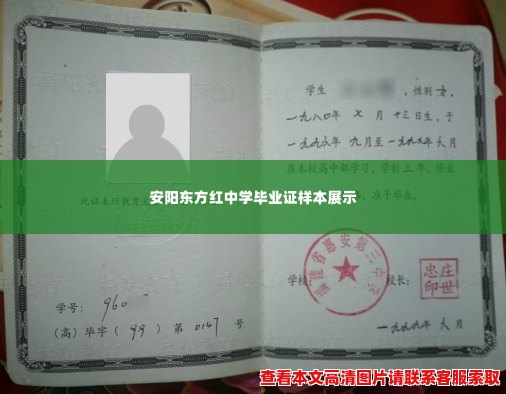 学生
，性别女，
一九八〇年 七 月 十三日生，于
一九九六年 九月至一九九九年六月
在本校高中部学习，学制三年，修业
安阳东方红中学毕业证样本展示
此证未经教育主
，准予毕业。
福建省惠安第三中学
学校：
校长：
庄世忠印
学号： 960
（高）毕字（ 99 ）第 0147 号
一九九九年 六 月
查看本文高清图片请联系客服索取